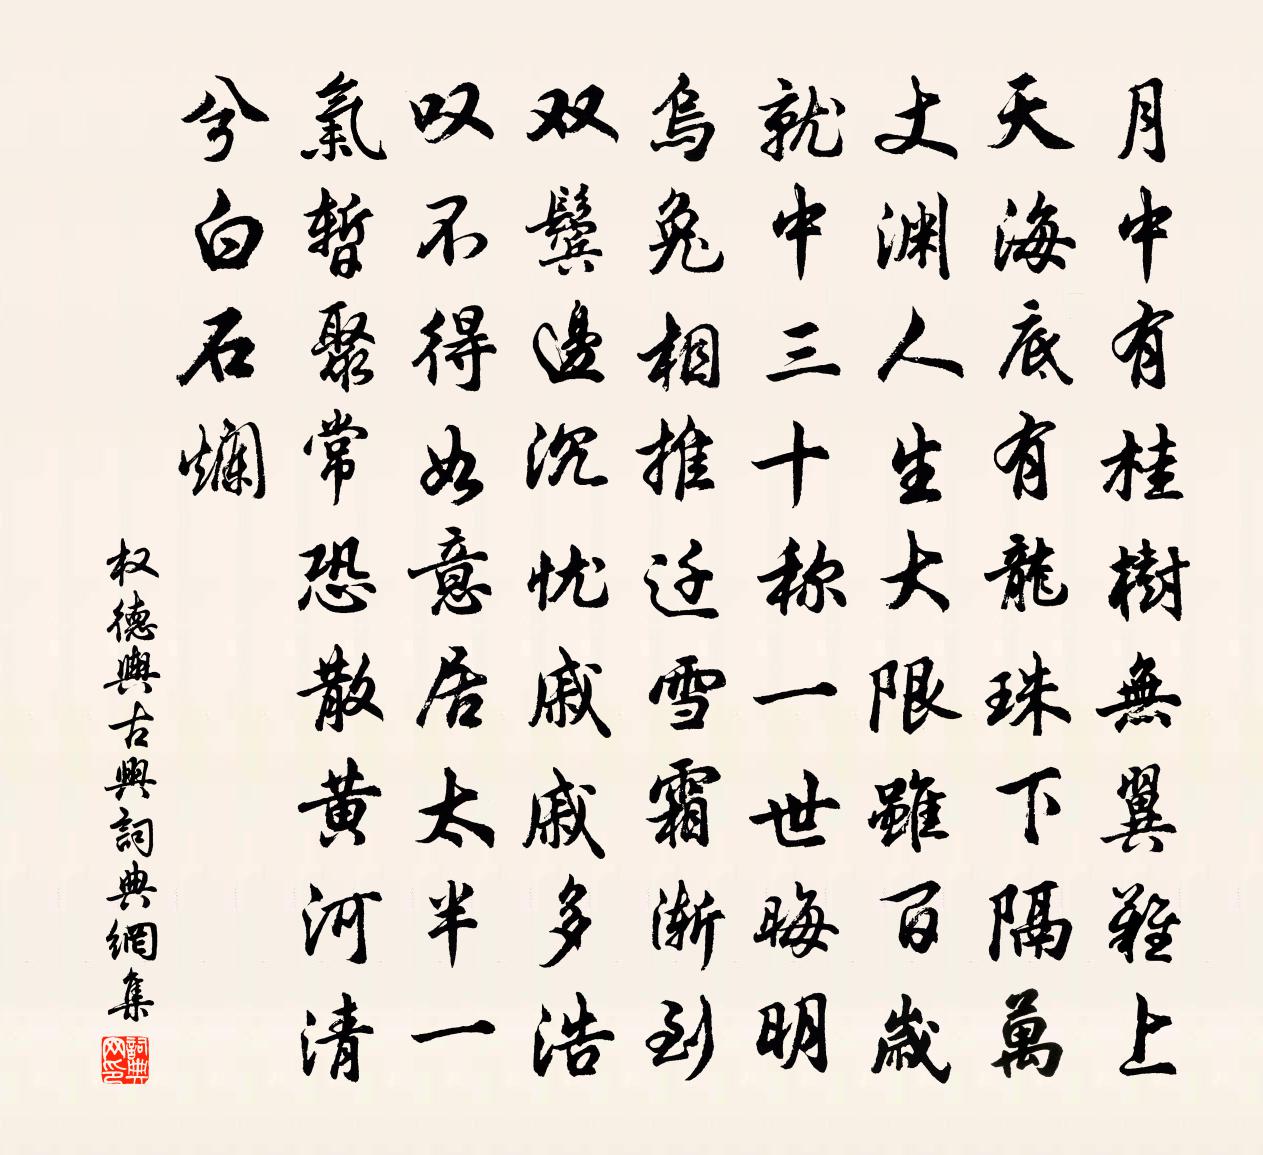 月中有桂樹無翼難上
天海底有龍珠下隔萬
丈渊人生大限雖百歳
就中三十称一世晦明
烏兔相推迁雪霜渐到
双鬓邊沉忧戚戚多浩
叹不得如意居太半一
氣暫聚常恐散黄河清
兮白石爛
权德輿古興詞典網集
詞典网印